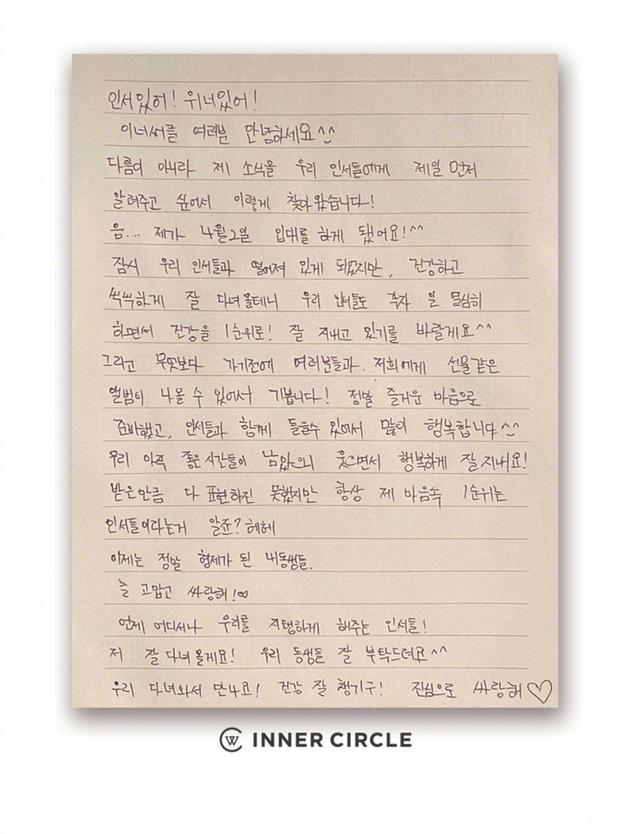 인서있어! 위너있어!
이너써클 여러분 안녕하세요^^
다름이 아니라 제 소식을 우리 인서들에게 제일 먼저
알려주고 싶어서 이렇게 찾아왔습니다!
음... 제가 4월2일 입대를 하게 됐어요!^^
잠시 우리 인서들과 떨어져 있게 되었지만, 건강하고
씩씩하게 잘 다녀올테니 우리 인서들도 각자 일 열심히
하면서 건강을 1순위로! 잘 지내고 있기를 바랄게요^^
그리고 무엇보다 가기전에 여러분들과 저희에게 선물같은
앨범이 나올 수 있어서 기쁩니다! 정말 즐거운 마음으로
준비했고, 인서들과 함께 들을수 있어서 많이 행복합니다^^
우리 아직 좋은시간들이 남았으니 웃으면서 행복하게 잘지내요!
받은만큼 다 표현하진 못했지만 항상 제 마음속 1순위는
인서들이라는거 알죠? 헤헤
이제는 정말 형제가 된 내동생들.
늘 고맙고 싸랑해!♡
언제 어디서나 우리를 지탱하게 해주는 인서들!
저 잘다녀올게요! 우리 동생들 잘 부탁드려요^^
우리 다녀와서 만나고! 건강 잘 챙기구! 진심으로 싸랑해♡
W INNER CIRCLE